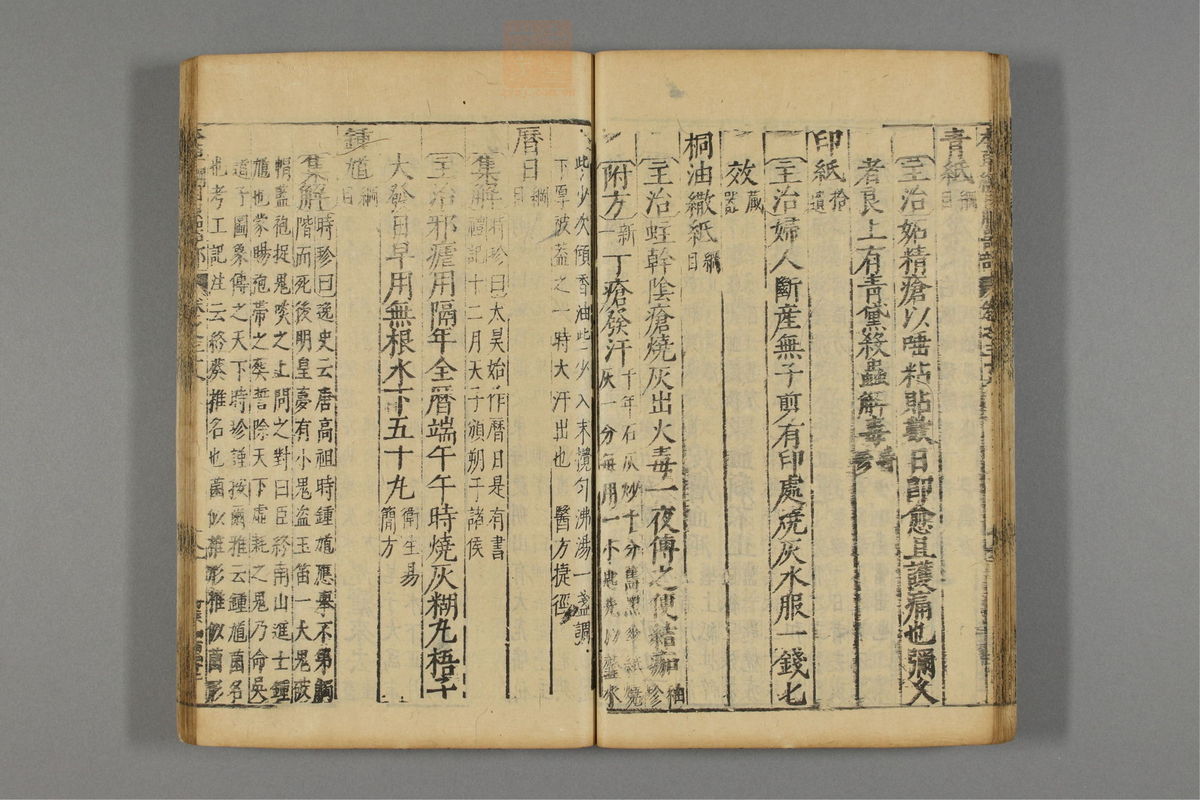 本草綱目服器部 卷之三十八
青紙綱目
主治妬精瘡以唾粘貼數日即愈且護痛也彌久
者良上有青黛殺蟲解毒時珍
印紙拾遺
主治婦人斷產無子剪有印處燒灰水服一錢匕
效藏器
桐油繖紙綱目
主治蛀幹陰瘡燒灰出火毒一夜傅之便結痂時珍
附方新一丁瘡發汗千年石灰炒十分舊黑傘紙燒
灰一分每用一小匙先以虀水
些少次傾香油些少入末攪勻沸湯一盞調
下厚被蓋之一時大汗出也 醫方捷徑
曆日綱目
集解時珍曰太昊始作曆日是有書
禮記十二月天子頒朔于諸侯
主治邪瘧用隔年全曆端午午時燒灰糊丸梧子
大發日早用無根水下五十丸衛生易簡方
鍾馗綱目
集解時珍曰逸史云唐高祖時鍾馗應舉不第觸
階而死後明皇夢有小鬼盜玉笛一大鬼破
帽藍袍捉鬼啖之上問之對曰臣終南山進士鍾
馗也蒙賜袍帶之葬誓除天下虛耗之鬼乃命吳
道子圖象傳之天下時珍謹按爾雅云鍾馗菌名
也考工記注云終葵椎名也菌似椎形椎似菌形